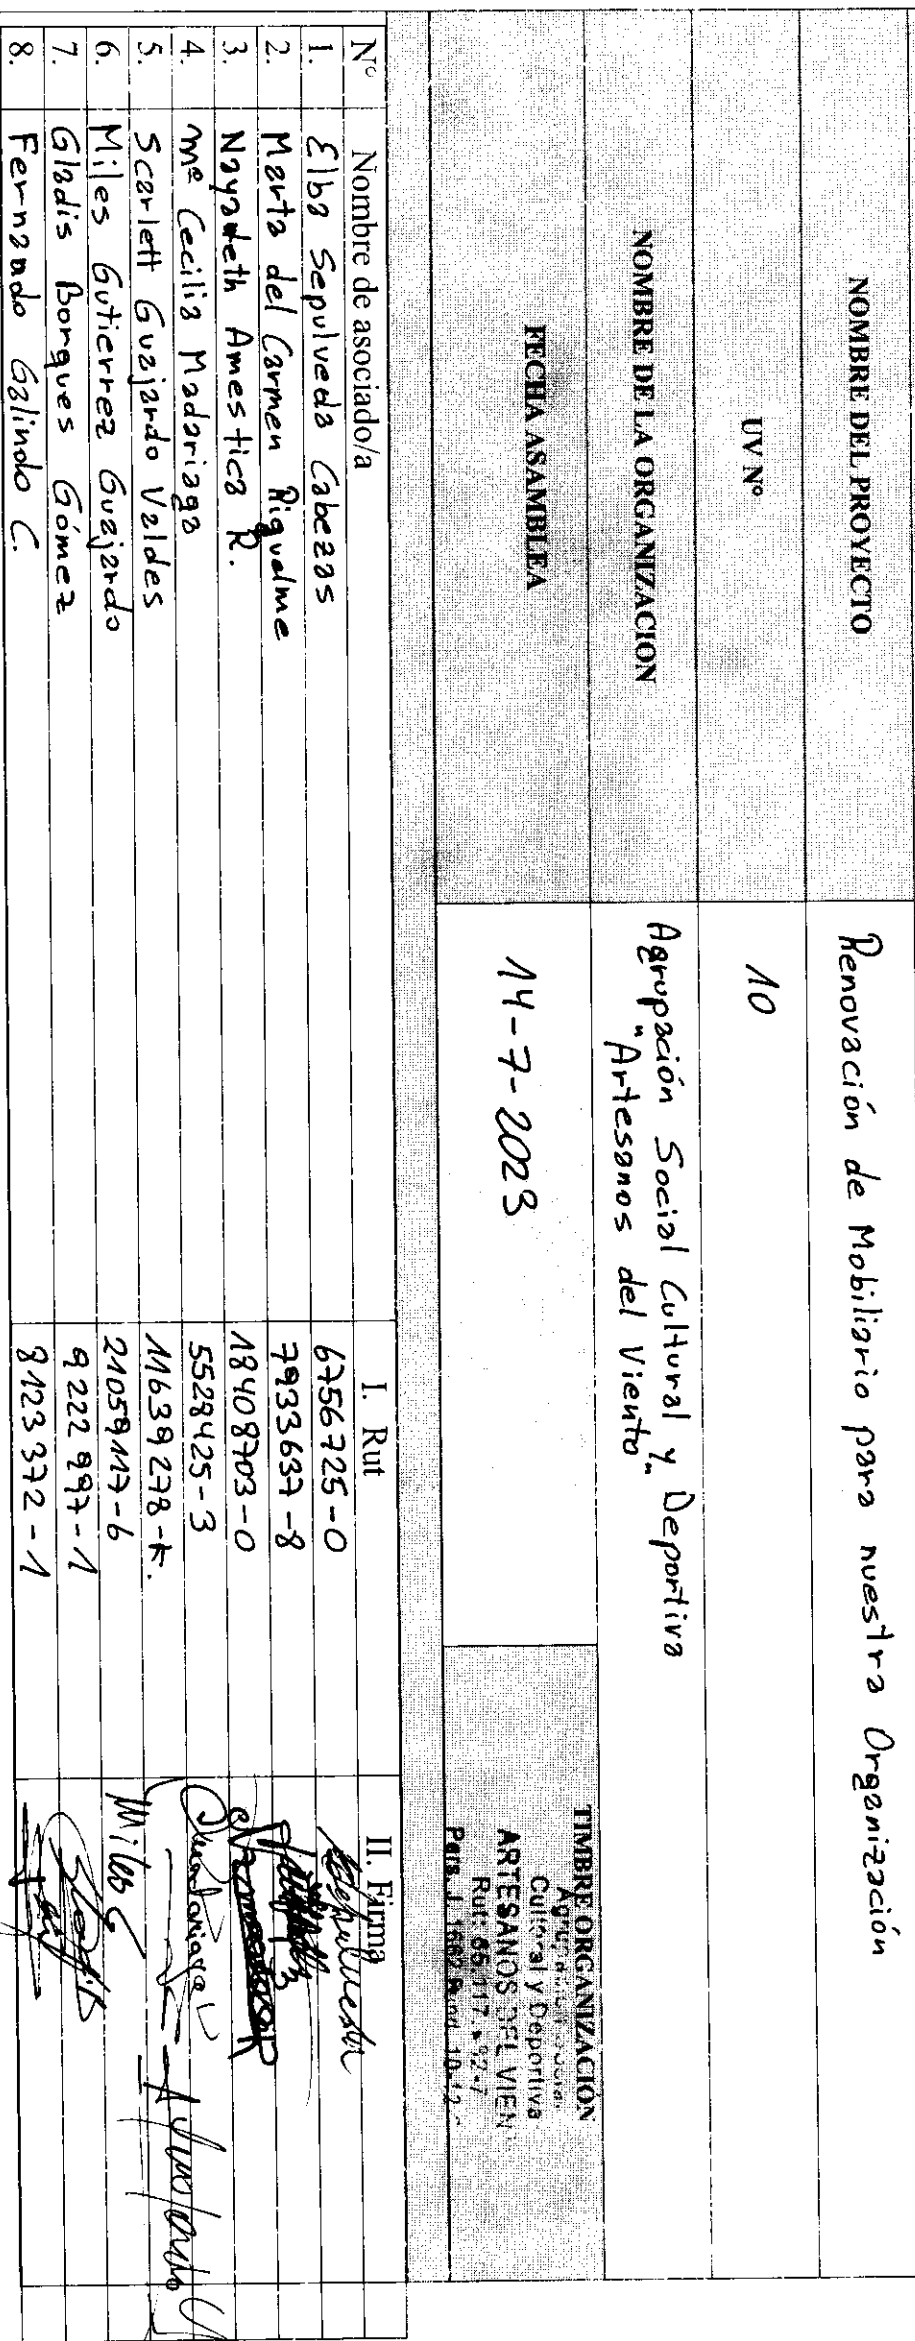 NOMBRE DEL PROYECTO Renovación de Mobiliario para nuestra Organización
UV N° 10
NOMBRE DE LA ORGANIZACION Agrupación Social Cultural y Deportiva
"Artesanos del Viento"
FECHA ASAMBLEA 14-7-2023
TIMBRE ORGANIZACIÓN
Cultural y Deportiva
ARTESANOS DEL VIEN
N° Nombre de asociado/a I. Rut II. Firma
1. Elba Sepulveda Cabezas 6756725-0
2. Marta del Carmen Riquelme 7933637-8
3. Nayareth Amestica R. 18408703-0
4. Mª Cecilia Madariaga 5528425-3
5. Scarlett Guajardo Valdes 11639278-K.
6. Miles Gutierrez Guajardo 21059117-6 Miles G
7. Gladis Borques Gómez 9222997-1
8. Fernando Galindo C. 8123372-1